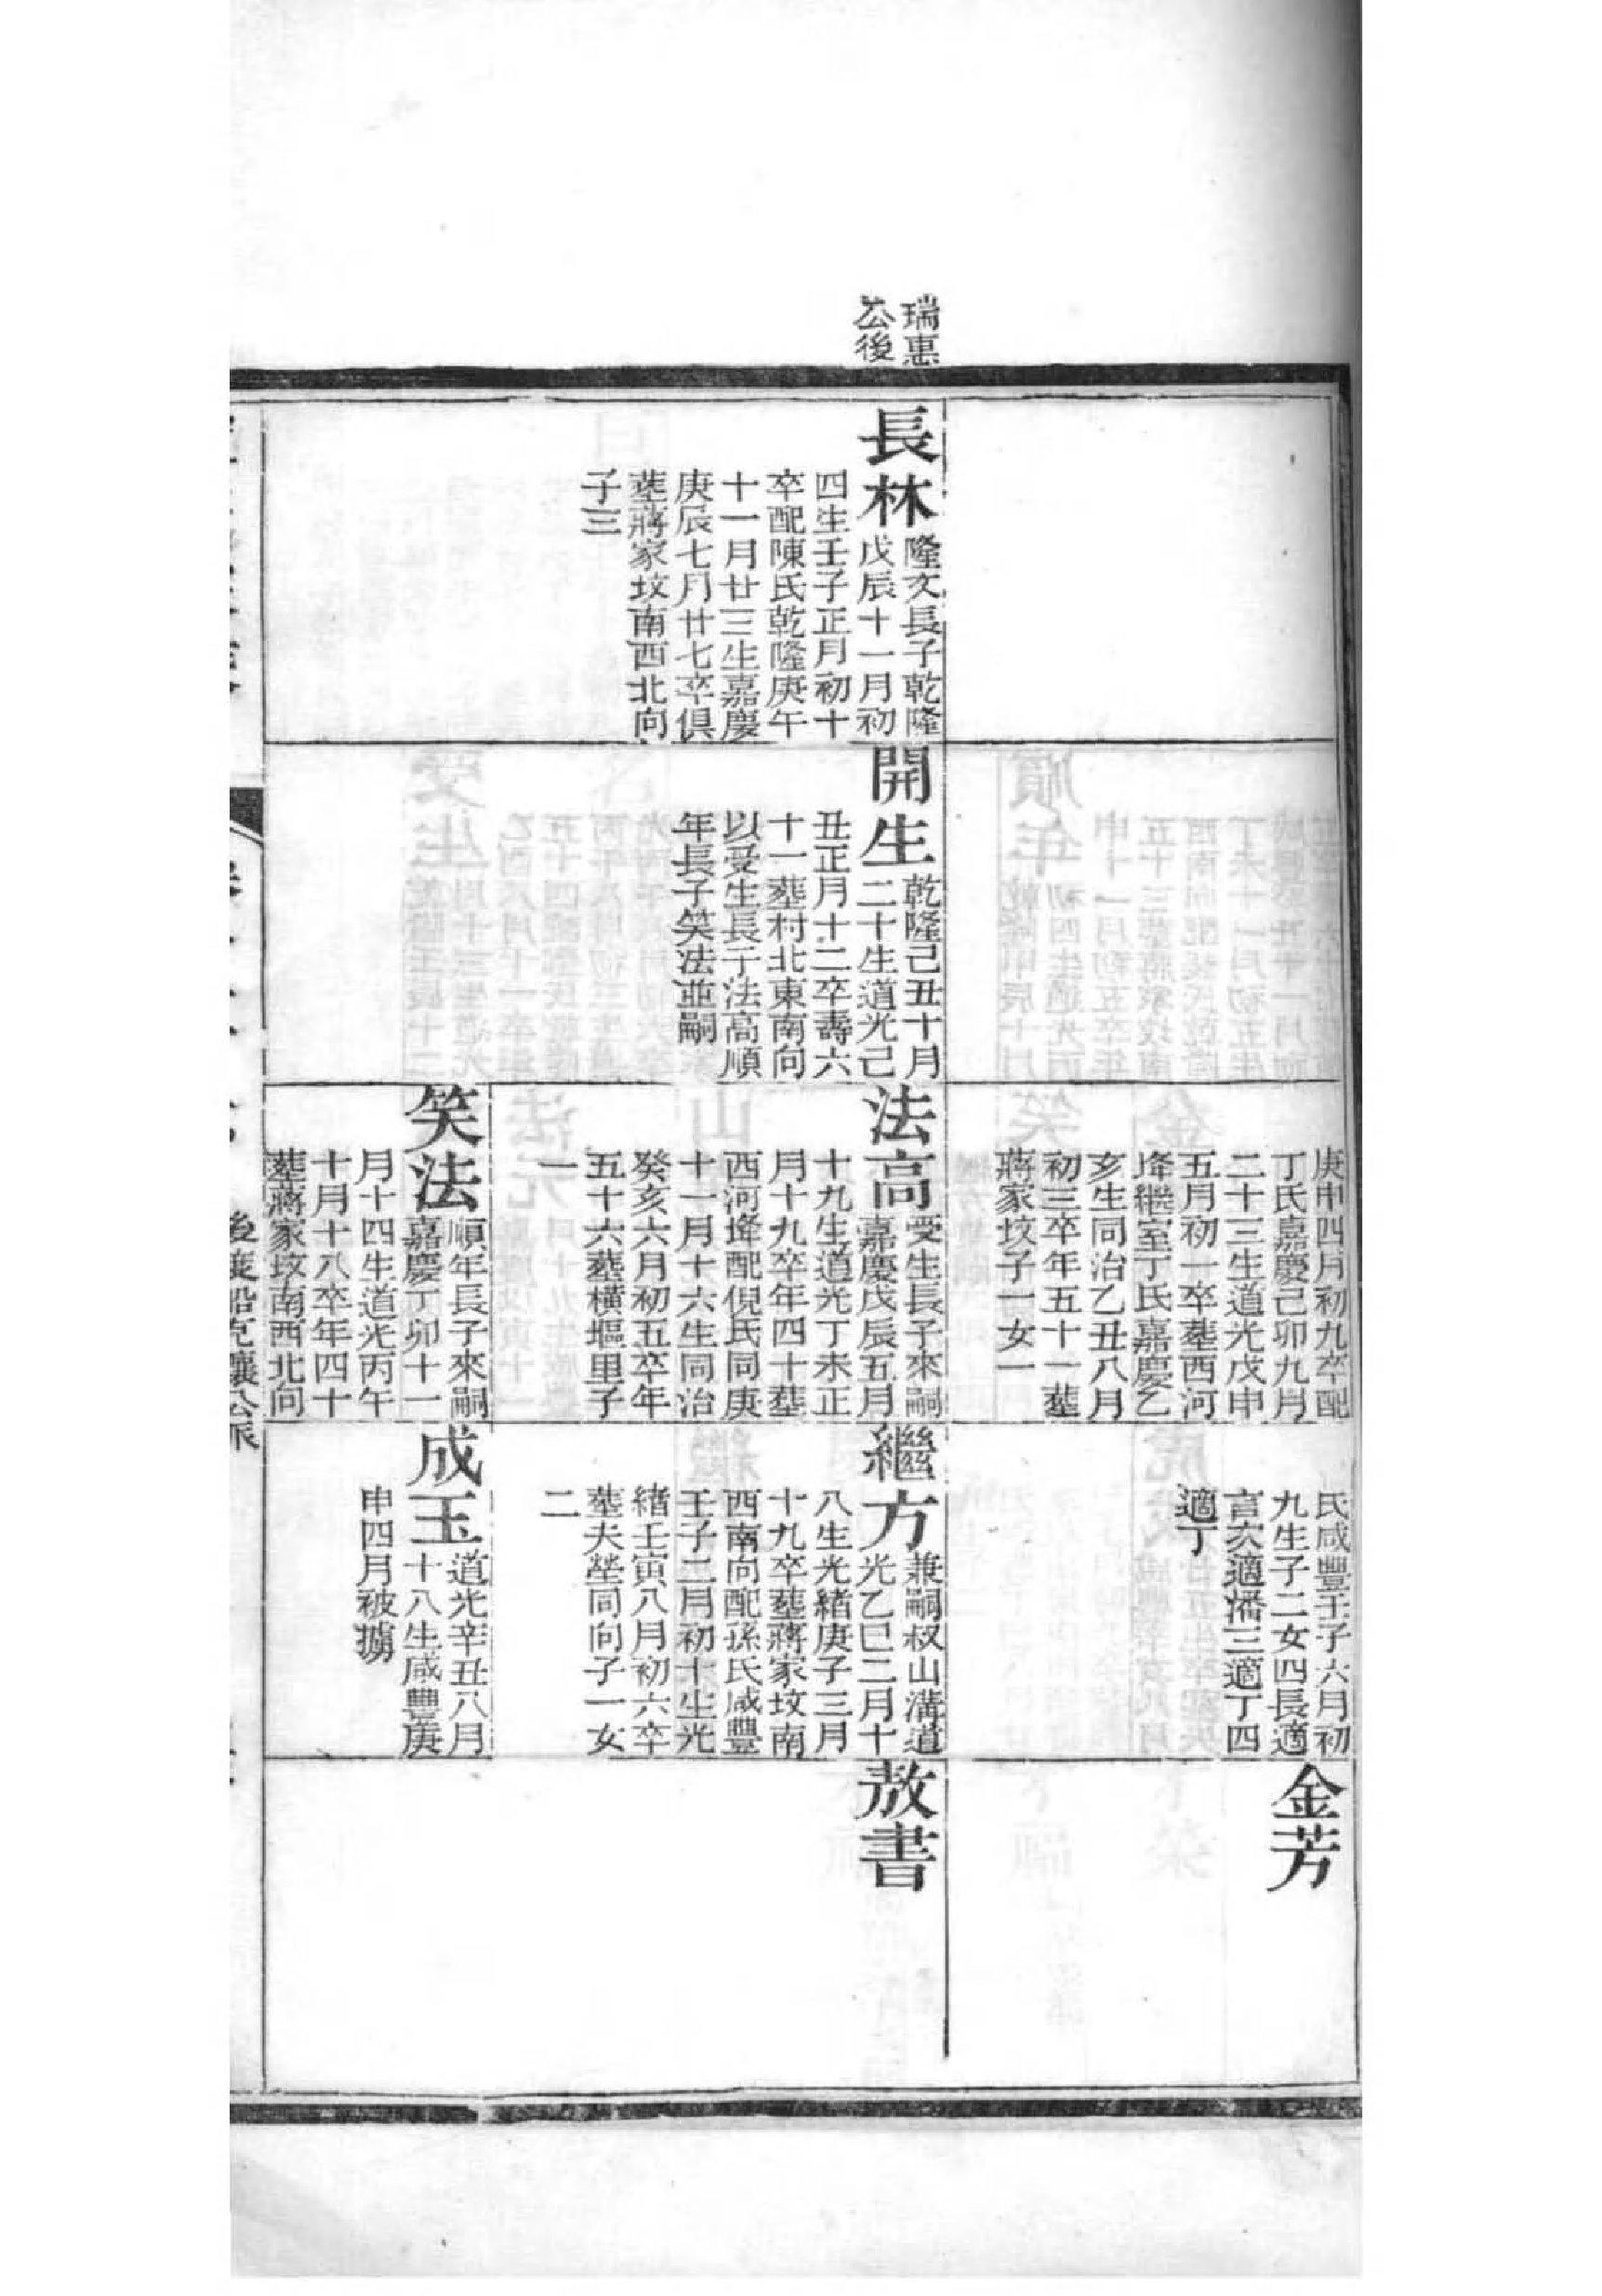 瑞惠
公後
庚申四月初九卒配
丁氏嘉慶己卯九月
二十三生道光戊申
五月初一卒塟西河
㷭繼室丁氏嘉慶乙
亥生同治乙丑八月
初三卒年五十一塟
蔣家坟子一女一
氏咸豐壬子六月初
九生子二女四長適
言次適潘三適丁四
適丁
金芳
長林
隆文長子乾隆
戊辰十一月初
四生壬子正月初十
卒配陳氏乾隆庚午
十一月廿三生嘉慶
庚辰七月廿七卒俱
塟蔣家坟南西北向
子三
開生
乾隆己丑十月
二十生道光己
丑正月十二卒壽六
十一塟村北東南向
以受生長子法高順
年長子笑法並嗣
法高
受生長子來嗣
嘉慶戊辰五月
十九生道光丁未正
月十九卒年四十塟
西河㷭配倪氏同庚
十一月十六生同治
癸亥六月初五卒年
五十六塟橫塸里子
一
繼方
兼嗣叔山溝道
光乙巳二月十
八生光緒庚子三月
十九卒塟蔣家坟南
西南向配孫氏咸豐
壬子二月初十生光
緒壬寅八月初六卒
塟夫塋同向子一女
二
敖書
笑法
順年長子來嗣
嘉慶丁卯十一
月十四生道光丙午
十月十八卒年四十
塟蔣家坟南西北向
成玉
道光辛丑八月
十八生咸豐庚
申四月被擄